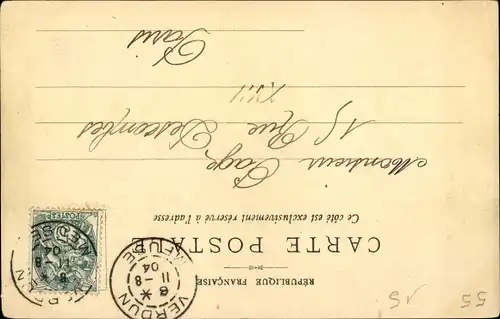 RÉPUBLIQUE FRANÇAISE
CARTE POSTALE
Ce côté est exclusivement réservé à l'adresse
Monsieur Page
15 Rue Descombes
XVII
Paris
VERDUN
MEUSE
11-8
04
POSTES
15
55